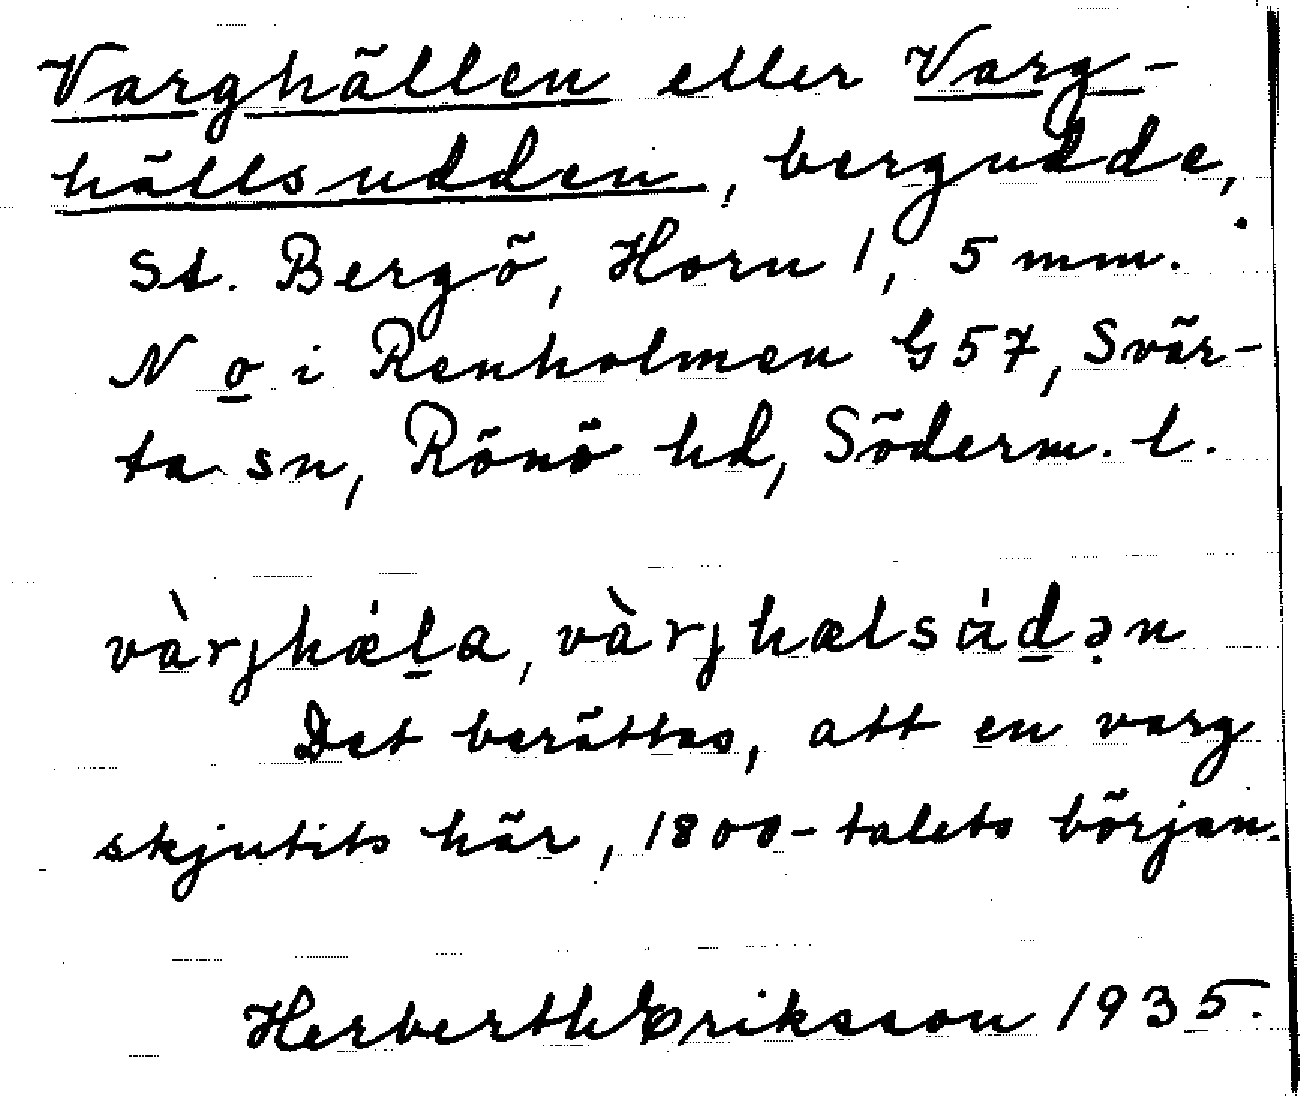 Varghällen eller Varg-
hällsudden, bergudde,
St. Bergö, Horn 1, 5 mm.
N o i Renholmen G57, Svär-
ta sn, Rönö hd, Söderm. l.
vàrjhæ̍l̠a, vàrjhælsɑ̍d̠ə̣n
Det berättas, att en varg
skjutits här, 1800-talets början.
Herberth Eriksson 1935.